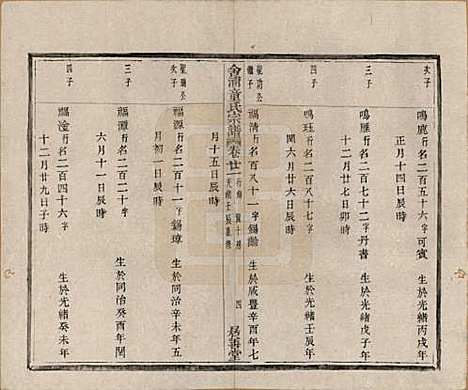 次子
鳴鹿 行名二百六十六 字可賓 生於光緒丙戌年
正月十四日辰時
三子
鳴雁 行名二百七十二 字丹書 生於光緒戊子年
十二月初七日卯時
四子
鳴珏 行名二百八十七 字 生於光緒壬辰年
閏六月廿六日辰時
聖功公繼子
福清 行名百八十一 字錫齡 生於咸豐辛酉年七
月十五日辰時
舍浦童氏宗譜 卷廿二 四 居善堂
次子
福源 行名二百十一 字錫璋 生於同治辛未年五
月初一日辰時
三子
福灝 行名二百二十 字 生於同治癸酉年閏
六月十一日辰時
四子
福瀅 行名二百四十六 字 生於光緒癸未年
十二月廿九日子時